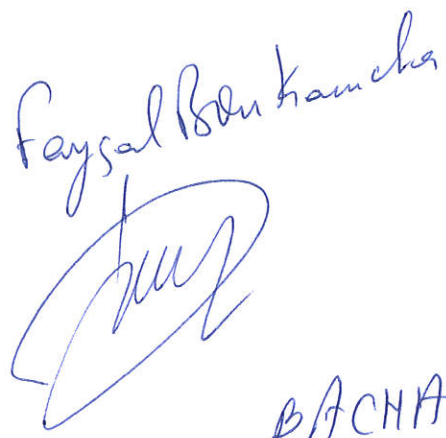 Faysal Benkamcha
BACHA